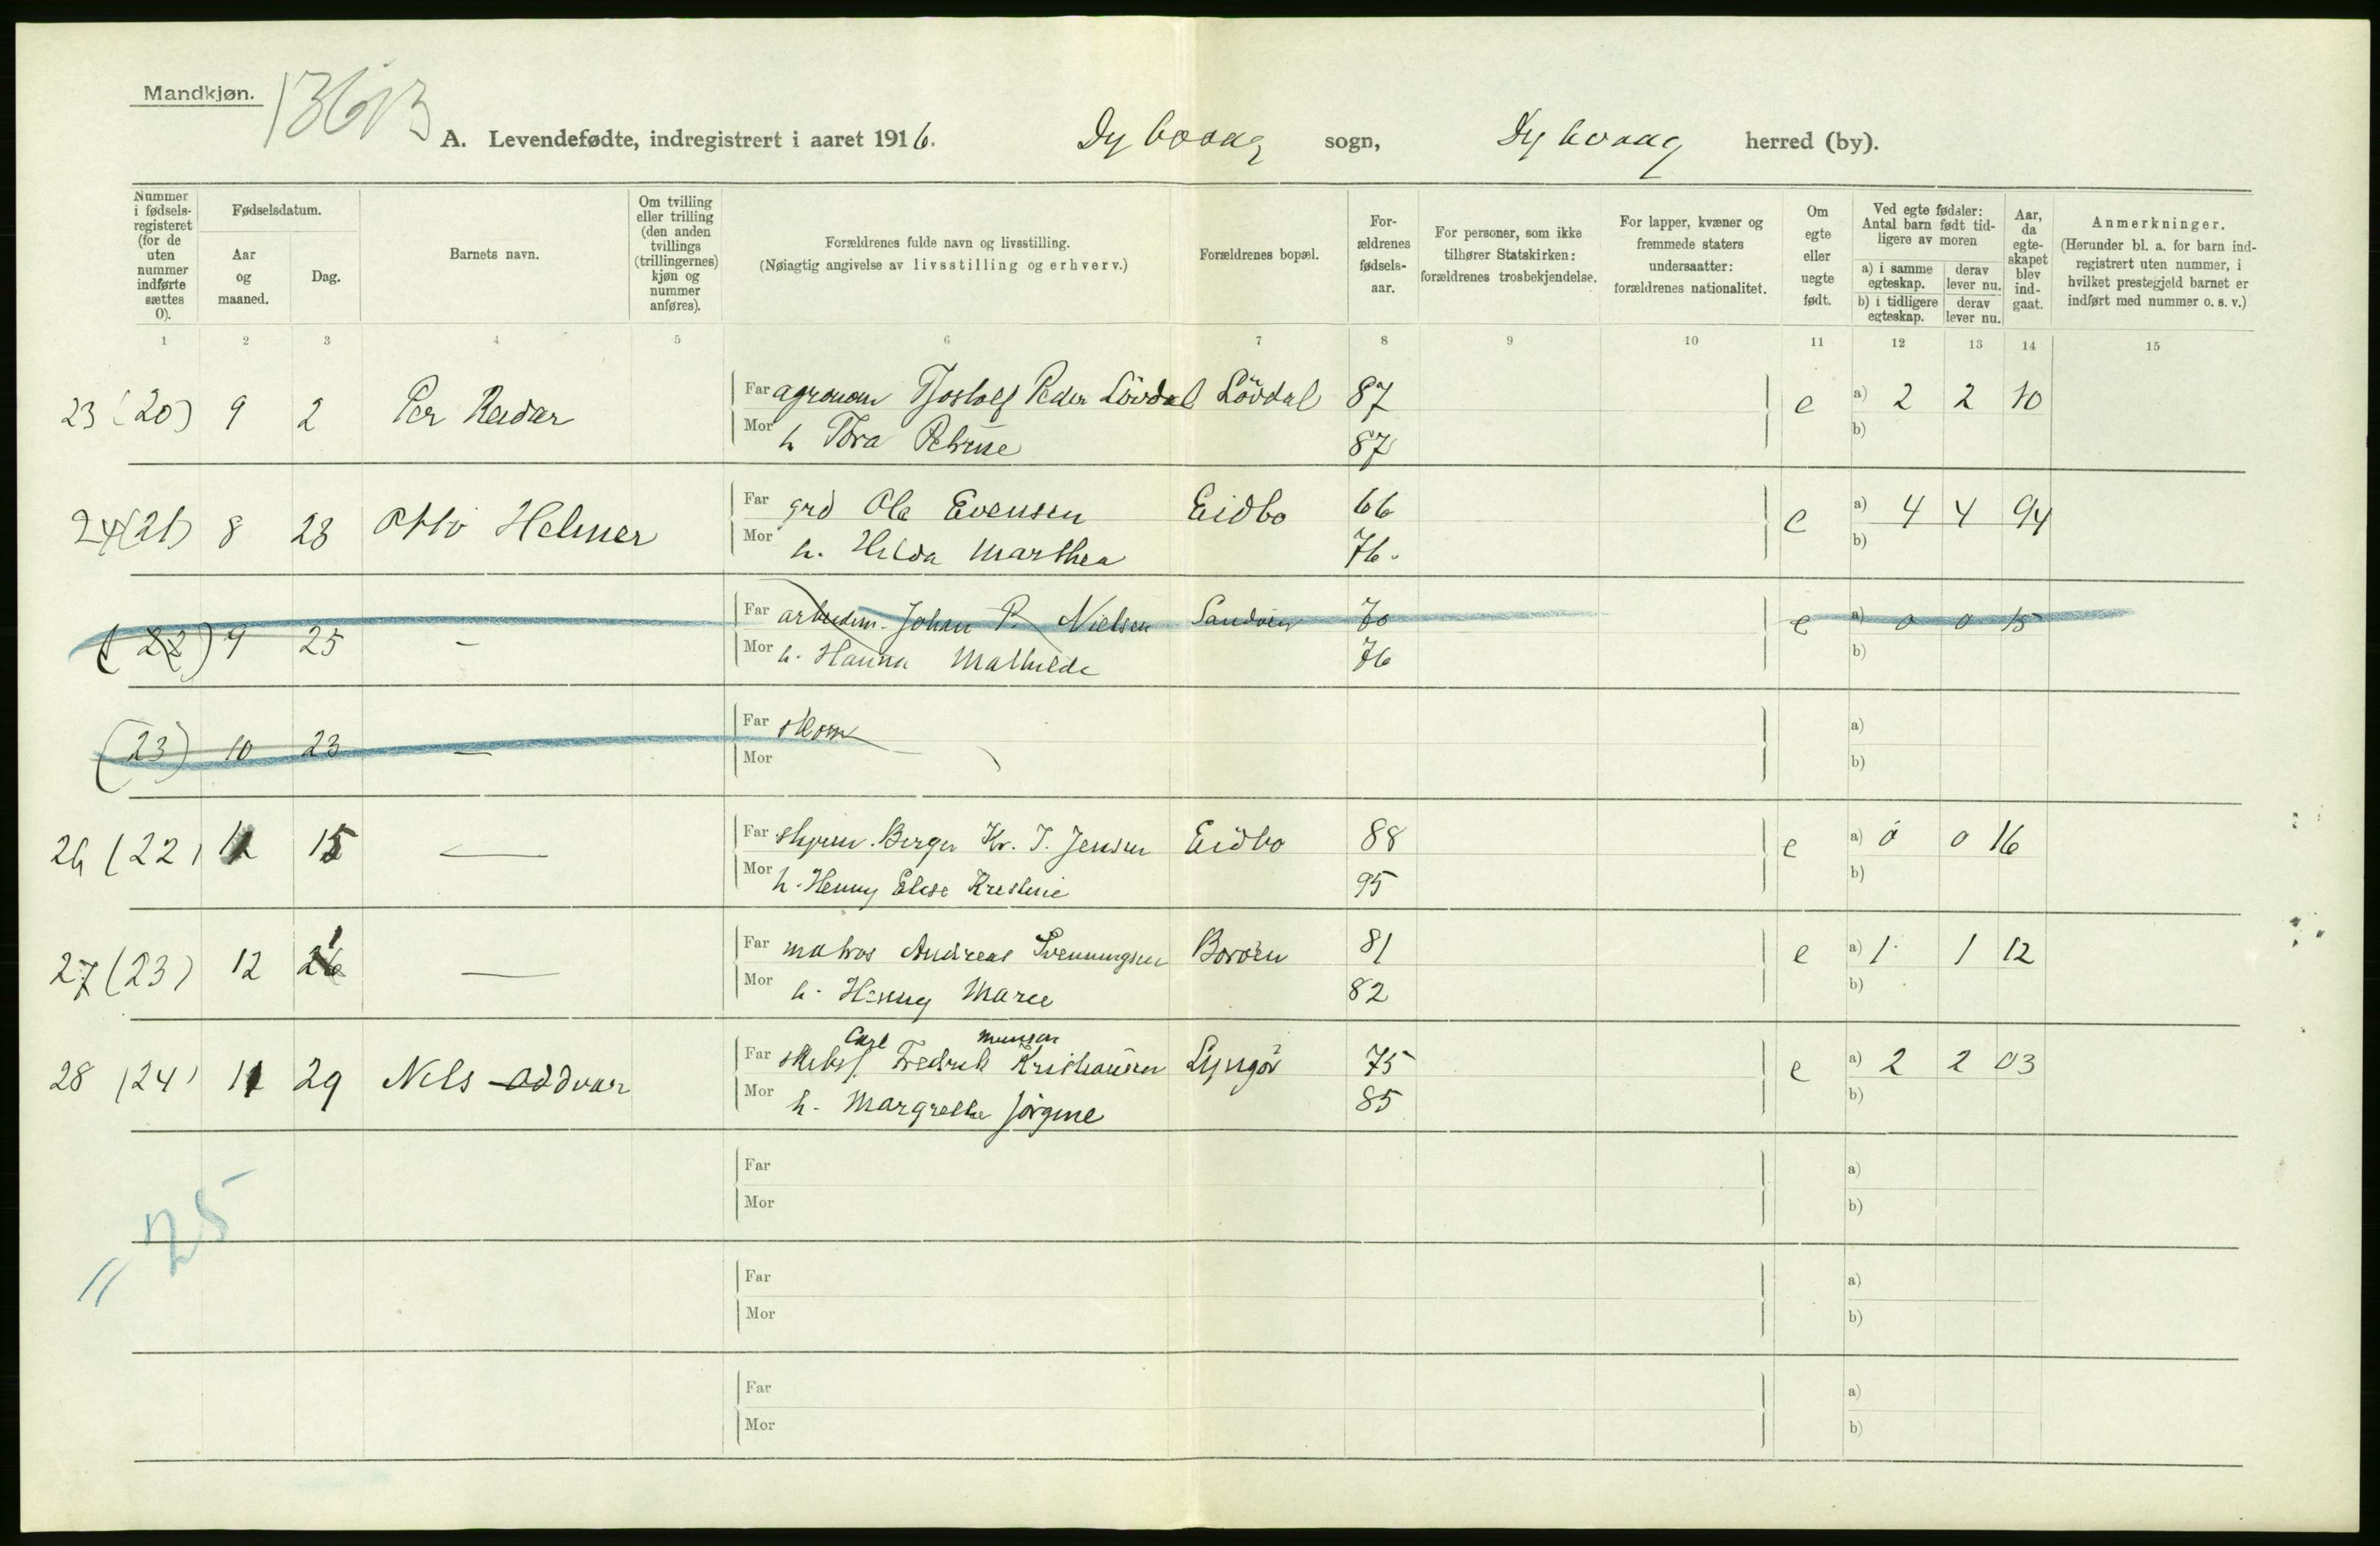 Mandkjøn.
A. Levendefødte, indregistrert i aaret 1916. Dybvaag sogn, Dybvaag herred (by).
Nummer i fødselsregisteret (for de uten nummer indførte sættes 0).
Fødselsdatum.
Aar og maaned.
Dag.
Barnets navn.
Om tvilling eller trilling (den anden tvillings (trillingernes) kjøn og nummer anføres).
Forældrenes fulde navn og livsstilling.
(Nøiagtig angivelse av livsstilling og erhverv.)
Forældrenes bopæl.
Forældrenes fødselsaar.
For personer, som ikke tilhører Statskirken: forældrenes trosbekjendelse.
For lapper, kvæner og fremmede staters undersaatter: forældrenes nationalitet.
Om egte eller uegte født.
Ved egte fødsler: Antal barn født tidligere av moren
a) i samme egteskap. derav lever nu.
b) i tidligere egteskap. derav lever nu.
Aar, da egteskapet blev indgaat.
Anmerkninger.
(Herunder bl. a. for barn indregistrert uten nummer, i hvilket prestegjeld barnet er indført med nummer o. s. v.)
1 2 3 4 5 6 7 8 9 10 11 12 13 14 15
23 (20) 9 2 Per Reidar Far agronom Tjostolf Peder Lövdal Lövdal 87 e a) 2 2 10
Mor h Tora Petrine 87 b)
24 (21) 8 23 Otto Helmer Far grd Ole Evensen Eidbo 66 e a) 4 4 94
Mor h. Hilda Marthea 76. b)
(22) 9 25 – Far arbeidsm. Johan P. Nielsen Sandöen 70 e a) 0 0 15
Mor h. Hanna Mathilde 76 b)
(23) 10 23 — Far skom
Mor
a)
b)
26 (22) 15 — Far styrm. Birger Kr. J. Jensen Eidbo 88 e a) 0 0 16
Mor h. Henny Elise Kristine 95 b)
27 (23) 12 — Far matros Andreas Svenningsen Boröen 81 e a) 1 1 12
Mor h. Henny Marie 82 b)
Carl
28 (24) 11 29 Nils Oddvar Far skibsf. Fredrik Kristiansen Lyngör 75 e a) 2 2 03
Mor h. Margrethe Jörgine 85 b)
Far a)
Mor b)
25
Far a)
Mor b)
Far a)
Mor b)